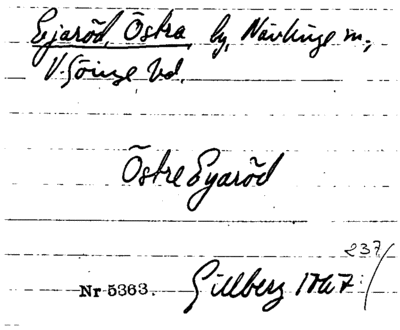 Ejaröd, Östra, by, Nävlinge sn,
V. Göinge hd.
Östre Eyaröd
237
Nr 5363. Gillberg 1767